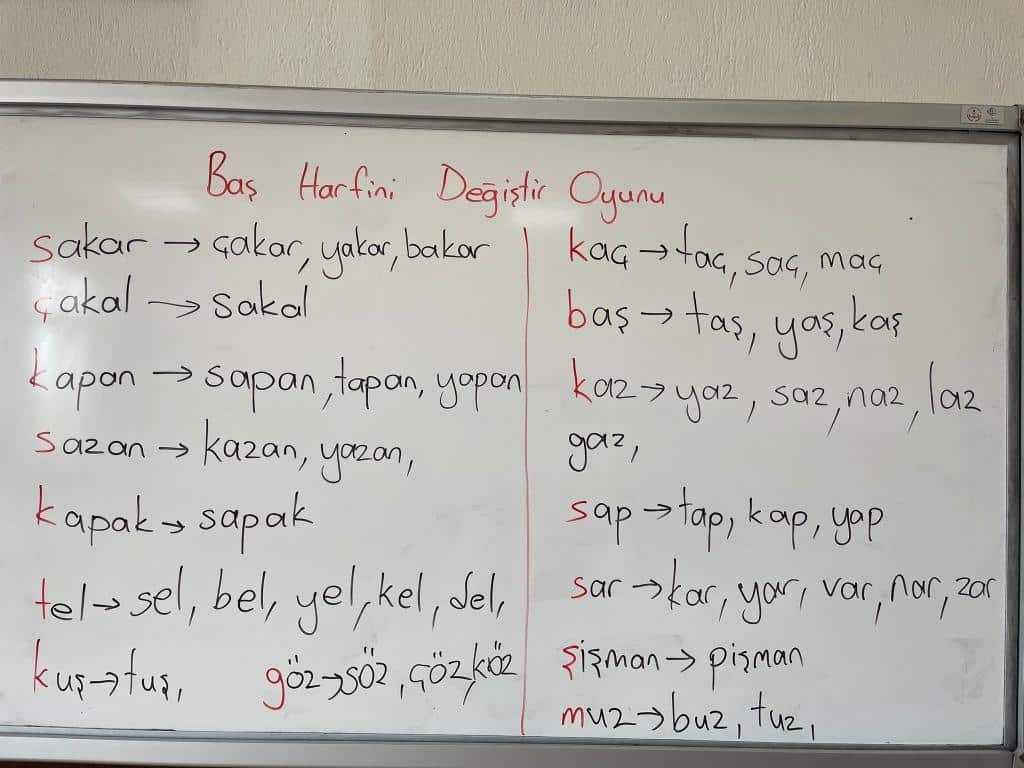 Baş Harfini Değiştir Oyunu
sakar → çakar, yakar, bakar
çakal → sakal
kapan → sapan, tapan, yapan
sazan → kazan, yazan,
kapak → sapak
tel → sel, bel, yel, kel, del,
kuş → tuş,
göz → söz, çöz, köz
kaç → taç, saç, maç
baş → taş, yaş, kaş
kaz → yaz, saz, naz, laz
gaz,
sap → tap, kap, yap
sar → kar, yar, var, nar, zar
şişman → pişman
muz → buz, tuz,